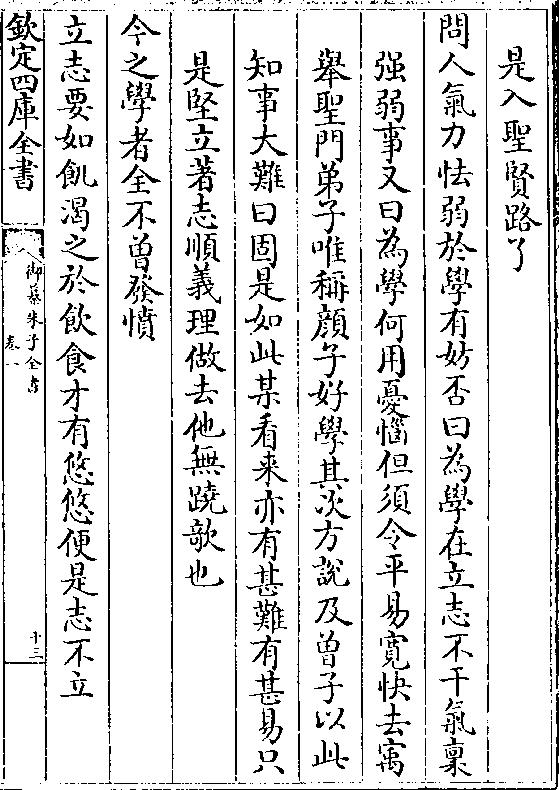 是入聖賢路了
問人氣力怯弱於學有妨否曰為學在立志不干氣稟
强弱事又曰為學何用憂惱但須令平易寛快去寓
舉聖門弟子唯稱顔子好學其次方說及曾子以此
知事大難曰固是如此某看来亦有甚難有甚易只
是堅立著志順義理做去他無蹺欹也
今之學者全不曽發憤
立志要如飢渴之於飲食才有悠悠便是志不立
欽定四庫全書
御纂朱子全書
卷一
十三